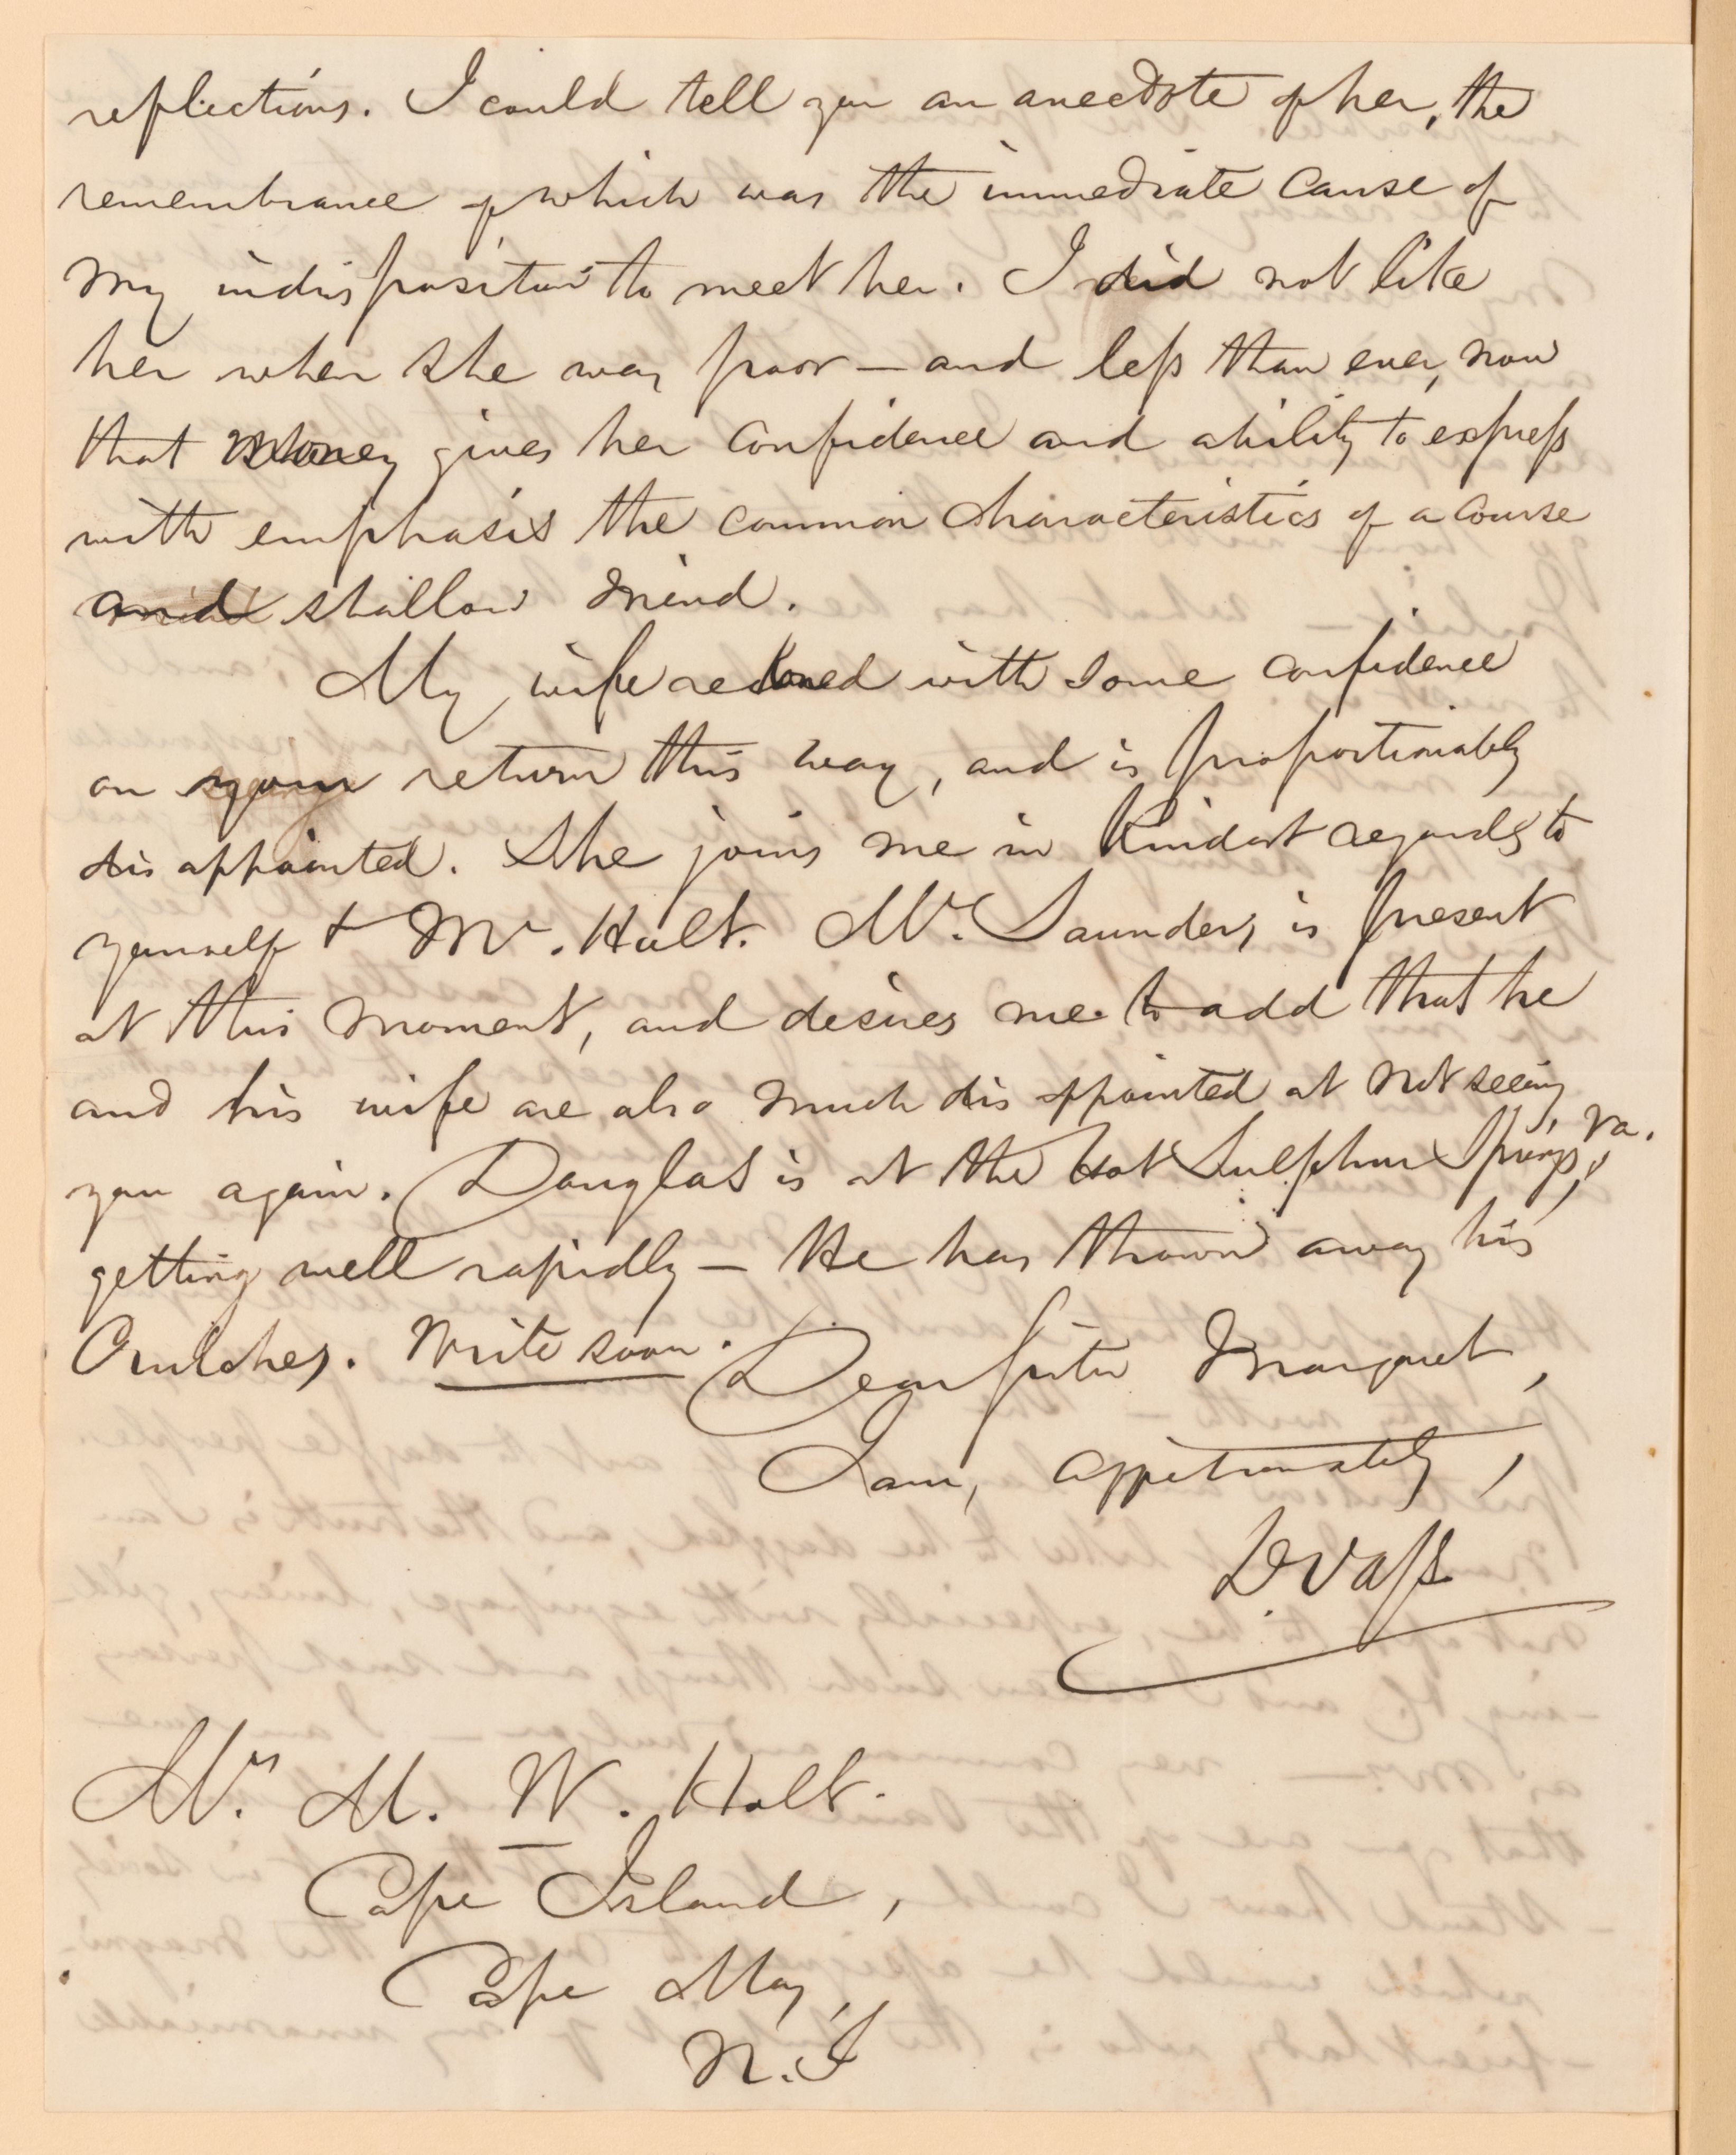 reflections. I could tell you an anecdote of her, the
remembrance of which was the immediate cause of
my indisposition to meet her. I did not like
her when she was poor — and less than ever, now
that money gives her confidence and ability to express
with emphasis the common characteristics of a course
and shallow mind.
My wife reckoned with some confidence
on your return this way, and is proportionably
disappointed. She joins me in kindest regards to
yourself & Mr. Holt. Mr. Saunders is present
at this moment, and desires me to add that he
and his wife are also much disappointed at not seeing
you again. Douglas is at the Hot Sulphur Springs, Va.
getting well rapidly — He has thrown away his
Crutches. Write soon. Dear sister Margaret,
I am, affectionately,
Mrs. M. W. Holt.
Cape Island,
Cape May,
N. J